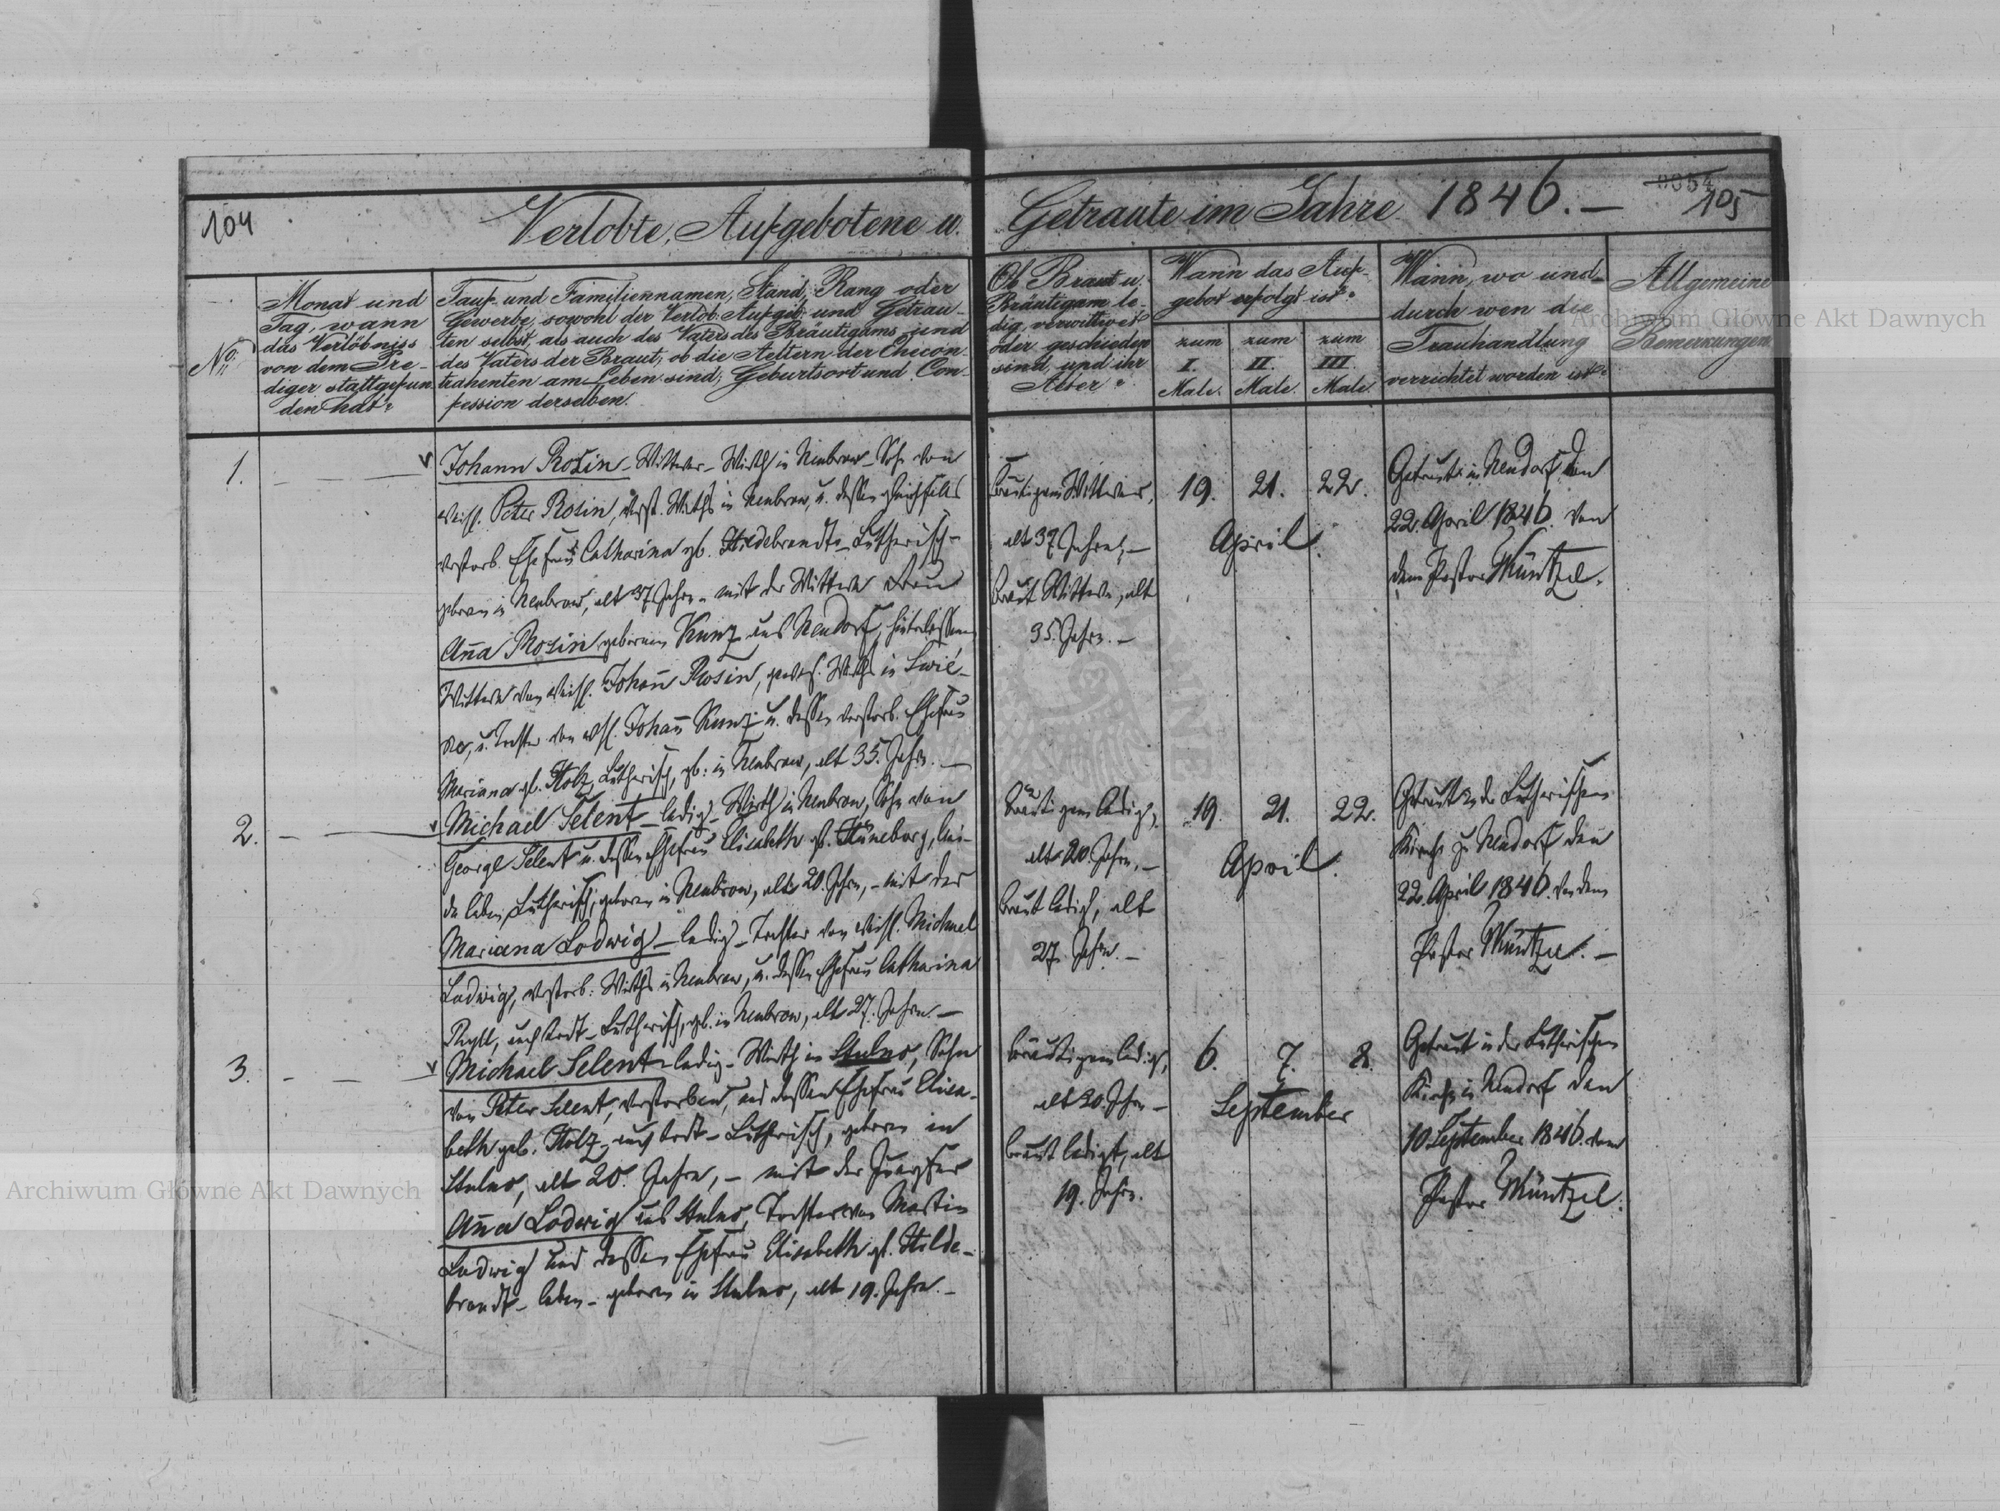 104
Verlobte, Aufgebotene u.
Getraute im Jahre 1846. —
0054
105
No:
Monat und
Tag, wann
das Verlöbniss
von dem Pre-
diger stattgefun
den hat?
Tauf- und Familiennamen, Stand, Rang oder
Gewerbe, sowohl der Verlob: Aufgeb: und Getrau-
ten selbst, als auch des Vaters des Bräutigams und
des Vaters der Braut; ob die Aeltern der Ehecon-
trahenten am Leben sind; Geburtsort und Con-
fession derselben.
Ob Braut u.
Bräutigam le-
dig, verwittwet
oder geschieden
sind, und ihr
Alter?
Wann das Auf-
gebot erfolgt ist?
zum
I.
Male.
zum
II.
Male.
zum
III.
Male.
Wann, wo und
durch wen die
Trauhandlung
verrichtet worden ist?
Allgemeine
Bemerkungen.
1.
Johann Rosin — Wittwer — Wirth in Neubrow — Sohn von
weil. Peter Rosin, verst. Wirths in Neubrow, u. dessen gleichfalls
verstorb. Ehefrau Catharina gb. Hildebrandt — Lutherisch —
geboren in Neubrow, alt 37 Jahre — mit der Wittwe Frau
Anna Rosin geborenen Kunz aus Neudorf, hinterlassene
Wittwe von weil. Johann Rosin, gewes. Wirths in Swie-
rze, u. Tochter von weil. Johann Kunz u. dessen verstorb. Ehefrau
Mariana gb. Stolz, Lutherisch, gb: in Neubrow, alt 35. Jahre. —
Bräutigam Wittwer,
alt 37 Jahre, —
Braut Wittwe, alt
35. Jahre. —
19. 21. 22.
April.
Getraut in Neudorf den
22. April 1846. von
dem Pastor Müntzel.
2.
Michael Selent — ledig — Wirth in Neubrow, Sohn von
George Selent u. dessen Ehefrau Elisabeth gb. Hüneburg, bei-
de leben, Lutherisch, geboren in Neubrow, alt 20. Jahre, — mit der
Mariana Lodwig — ledig — Tochter von weil. Michael
Lodwig, verstorb: Wirths in Neubrow, u. dessen Ehefrau Catharina
Ryll, auch todt — Lutherisch, gb. in Neubrow, alt 27. Jahre. —
Bräutigam ledig,
alt 20. Jahre, —
Braut ledig, alt
27. Jahre. —
19. 21. 22.
April.
Getraut in der Lutherischen
Kirche zu Neudorf den
22. April 1846. von dem
Pastor Müntzel. —
3.
Michael Selent — ledig — Wirth in Stulno, Sohn
von Peter Selent, verstorben, und dessen Ehefrau Elisa-
beth geb. Stolz — auch todt — Lutherisch, geboren in
Stulno, alt 20. Jahre, — mit der Jungfer
Anna Lodwig aus Stulno, Tochter von Martin
Lodwig und dessen Ehefrau Elisabeth gb. Hilde-
brandt — leben — geboren in Stulno, alt 19. Jahre. —
Bräutigam ledig,
alt 20. Jahre —
Braut ledig, alt
19. Jahre.
6. 7. 8.
September
Getraut in der Lutherischen
Kirche in Neudorf den
10 September 1846. vom
Pastor Müntzel.
Archiwum Główne Akt Dawnych
Archiwum Główne Akt Dawnych